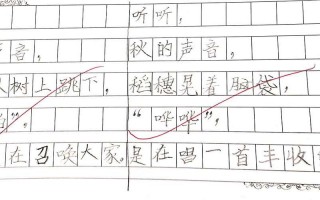 听听，
音， 秋的声音，
树上跳下， 稻穗晃着脑袋，
”， “哗哗”，
在召唤大家， 是在唱一首丰收